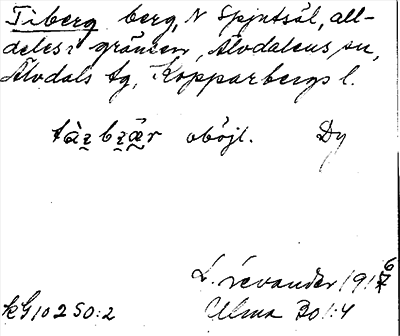 Tiberg berg, N Spjutsäl, all-
deles i gränsen, Älvdalens sn,
Älvdals tg, Kopparbergs l.
oböjl. Dy
L. Levander 1916
kG10250:2 Ulma Bo 1:4